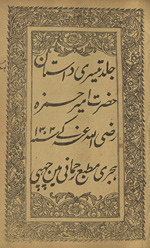 جلد تیسری داستان
حضرت امیر حمزہ
رضی اللہ عنہ کے ۱۳۰۲
ہجری مطبع رحمانی مین چھپی